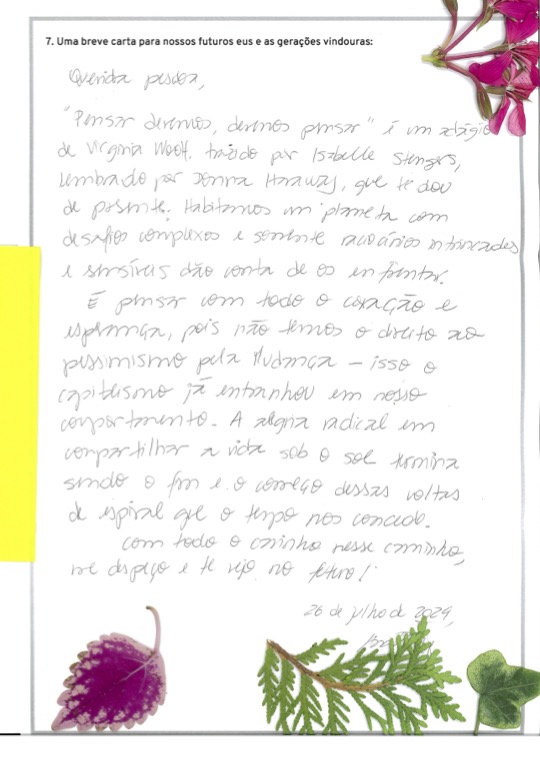 7. Uma breve carta para nossos futuros eus e as gerações vindouras:
Querida pessoa,
"Pensar devemos, devemos pensar" é um adágio
de Virginia Woolf, trazido por Isabelle Stengers,
lembrado por Donna Haraway, que te dou
de presente. Habitamos um planeta com
desafios complexos e somente raciocínios intrincados
e sensíveis dão conta de os enfrentar.
É pensar com todo o coração e
esperança, pois não temos o direito ao
pessimismo pela Mudança – isso o
capitalismo já entranhou em nosso
comportamento. A alegria radical em
compartilhar a vida sob o sol termina
sendo o fim e o começo dessas voltas
de espiral que o tempo nos concede.
Com todo o carinho nesse caminho,
me despeço e te vejo no futuro!
26 de julho de 2024,